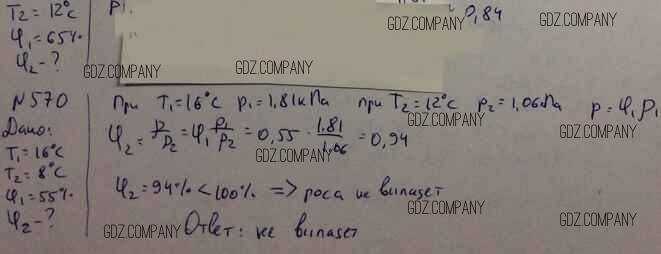 T₂ = 12°C
φ₁ = 65%
φ₂ - ?
0,84
GDZ.COMPANY
GDZ.COMPANY
GDZ.COMPANY
GDZ.COMPANY
GDZ.COMPANY
N570
Дано:
T₁ = 16°C
T₂ = 8°C
φ₁ = 55%
φ₂ - ?
При T₁ = 16°C p₁ = 1,81 кПа при T₂ = 12°C p₂ = 1,06 кПа p = φ₁p₁
φ₂ = p/p₂ = φ₁ p₁/p₂ = 0,55 · 1.81/1,06 = 0,94
GDZ.COMPANY
GDZ.COMPANY
GDZ.COMPANY
φ₂ = 94% < 100% => роса не выпадет
GDZ.COMPANY
GDZ.COMPANY
GDZ.COMPANY
Ответ: не выпадет